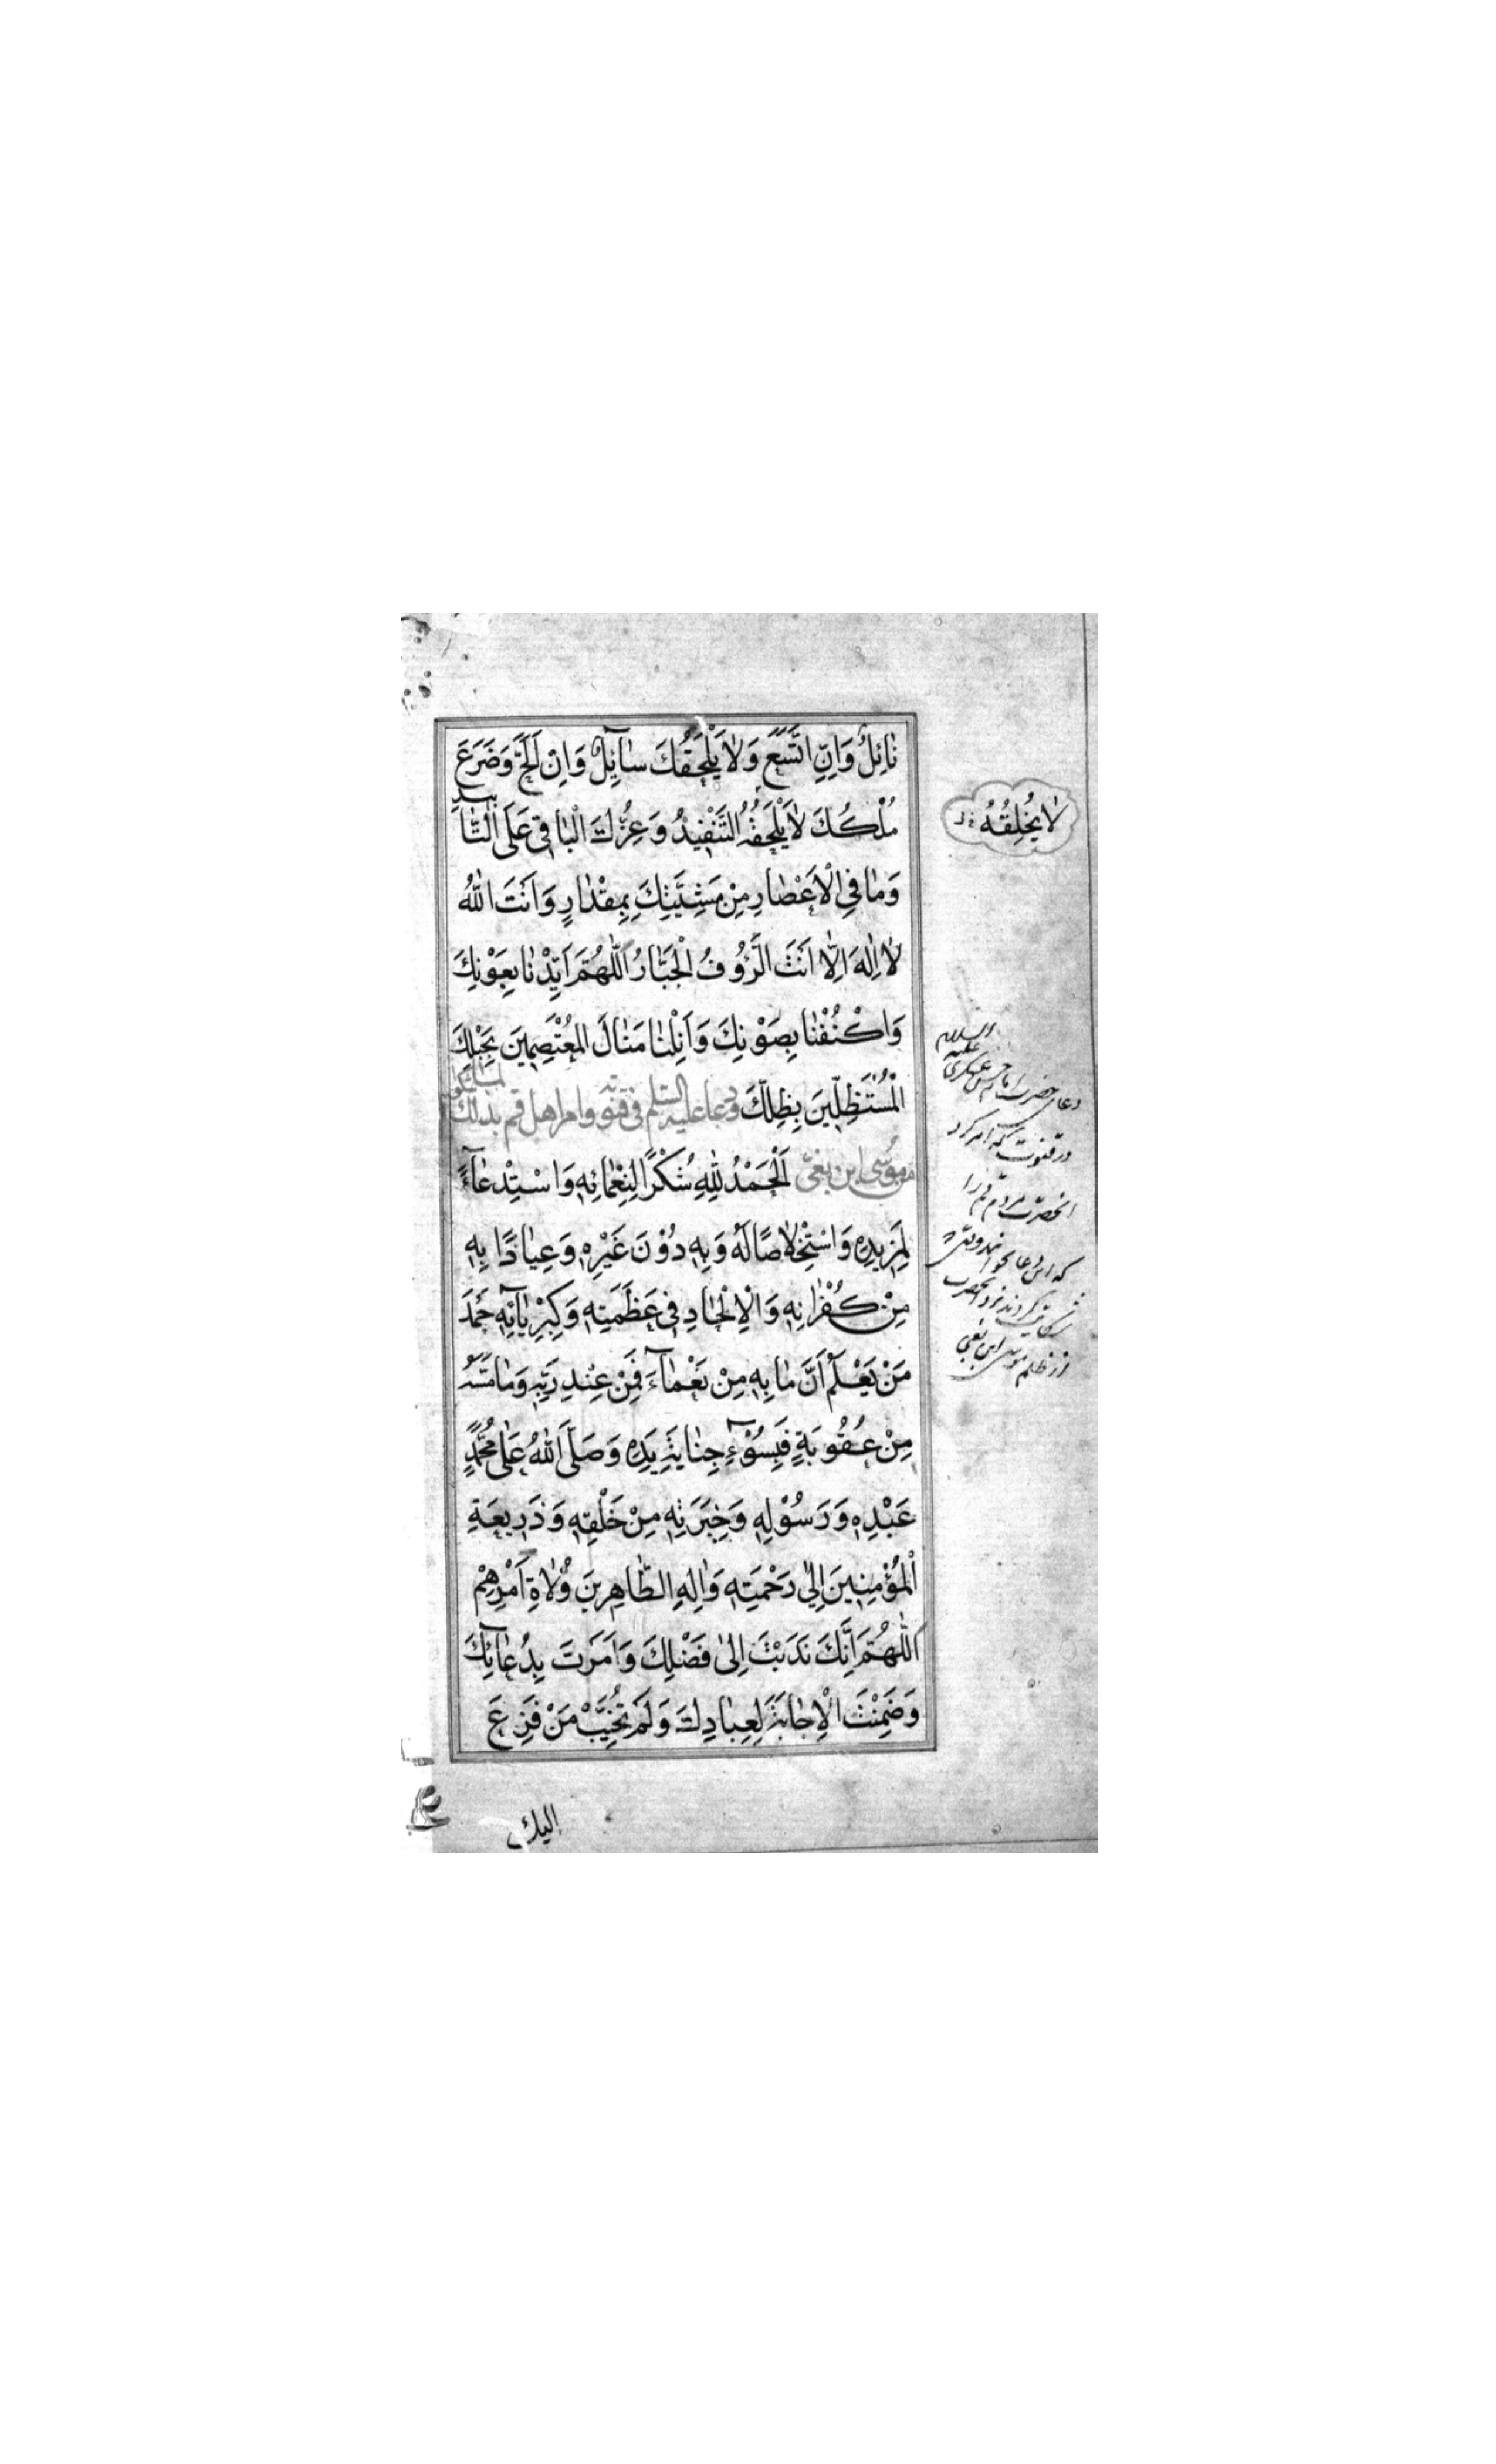 نٰائِلٌ وَاِنِ اتَّسَعَ وَلٰا يَلْحَقُكَ سٰآئِلٌ وَاِنْ اَلَحَّ وَضَرَعَ
مُلْكُكَ لٰا يَلْحَقُهُ التَّنْفِيدُ وَعِزُّكَ الْبٰاقِي عَلَى التَّأْبِيدِ
وَمٰا فِي الْاَعْصٰارِ مِنْ مَشِيَّتِكَ بِمِقْدٰارٍ وَاَنْتَ اللّٰهُ
لٰا اِلٰهَ اِلّٰا اَنْتَ الرَّؤُوفُ الْجَبّٰارُ اَللّٰهُمَّ اَيِّدْنٰا بِعَوْنِكَ
وَاكْنُفْنٰا بِصَوْنِكَ وَاَنِلْنٰا مَنٰالَ الْمُعْتَصِمِينَ بِحَبْلِكَ
الْمُسْتَظِلِّينَ بِظِلِّكَ ودعا عليه السلم في قنوته وامر اهل قم بذلك لما شكوا
من موسى ابن بغى اَلْحَمْدُ لِلّٰهِ شُكْرًا لِنِعْمٰائِهِ وَاسْتِدْعٰآءً
لِمَزِيدِهِ وَاسْتِخْلٰاصًا لَهُ وَبِهِ دُوْنَ غَيْرِهِ وَعِيٰاذًا بِهِ
مِنْ كُفْرٰانِهِ وَالْاِلْحٰادِ فِي عَظَمَتِهِ وَكِبْرِيٰآئِهِ حَمْدَ
مَنْ يَعْلَمُ اَنَّ مٰا بِهِ مِنْ نَعْمٰآءَ فَمِنْ عِنْدِ رَبِّهِ وَمٰا مَسَّهُ
مِنْ عُقُوبَةٍ فَبِسُوْٓءِ جِنٰايَةِ يَدِهِ وَصَلَّى اللّٰهُ عَلٰى مُحَمَّدٍ
عَبْدِهِ وَرَسُوْلِهِ وَخِيَرَتِهِ مِنْ خَلْقِهِ وَذَرِيعَةِ
الْمُؤْمِنِينَ اِلٰى رَحْمَتِهِ وَاٰلِهِ الطّٰاهِرِينَ وُلٰاةِ اَمْرِهِمْ
اَللّٰهُمَّ اِنَّكَ نَدَبْتَ اِلٰى فَضْلِكَ وَاَمَرْتَ بِدُعٰآئِكَ
وَضَمِنْتَ الْاِجٰابَةَ لِعِبٰادِكَ وَلَمْ تُخَيِّبْ مَنْ فَزِعَ
اليك
لٰا يُخْلِقُهُ
دعاى حضرت امام حسن عسكرى عليه السلام
در قنوت كه امر كرد
انحضرت مردم قم را
كه اين دعا بخوانند وقتى
شكايت كردند نزد انحضرت
از ظلم موسى ابن بغى